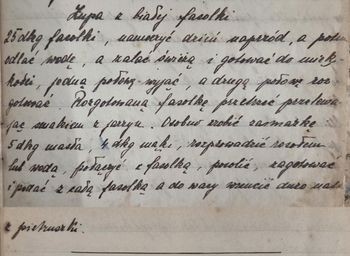 Zupa z białej fasolki
25 dkg fasolki, namoczyć dzień naprzód, a potem
odlać wodę, a nalać świeżą i gotować do mięk-
kości, jedną połowę wyjąć, a drugą połowę roz-
gotować. Rozgotowaną fasolkę przetrzeć przelewa-
jąc smakiem z jarzyn. Osobno zrobić zasmażkę
5 dkg masła, 4 dkg mąki, rozprowadzić rosołem
lub wodą, połączyć z fasolką, posolić, zagotować
i podać z całą fasolką a do wazy wrzucić dużo
z pietruszki.